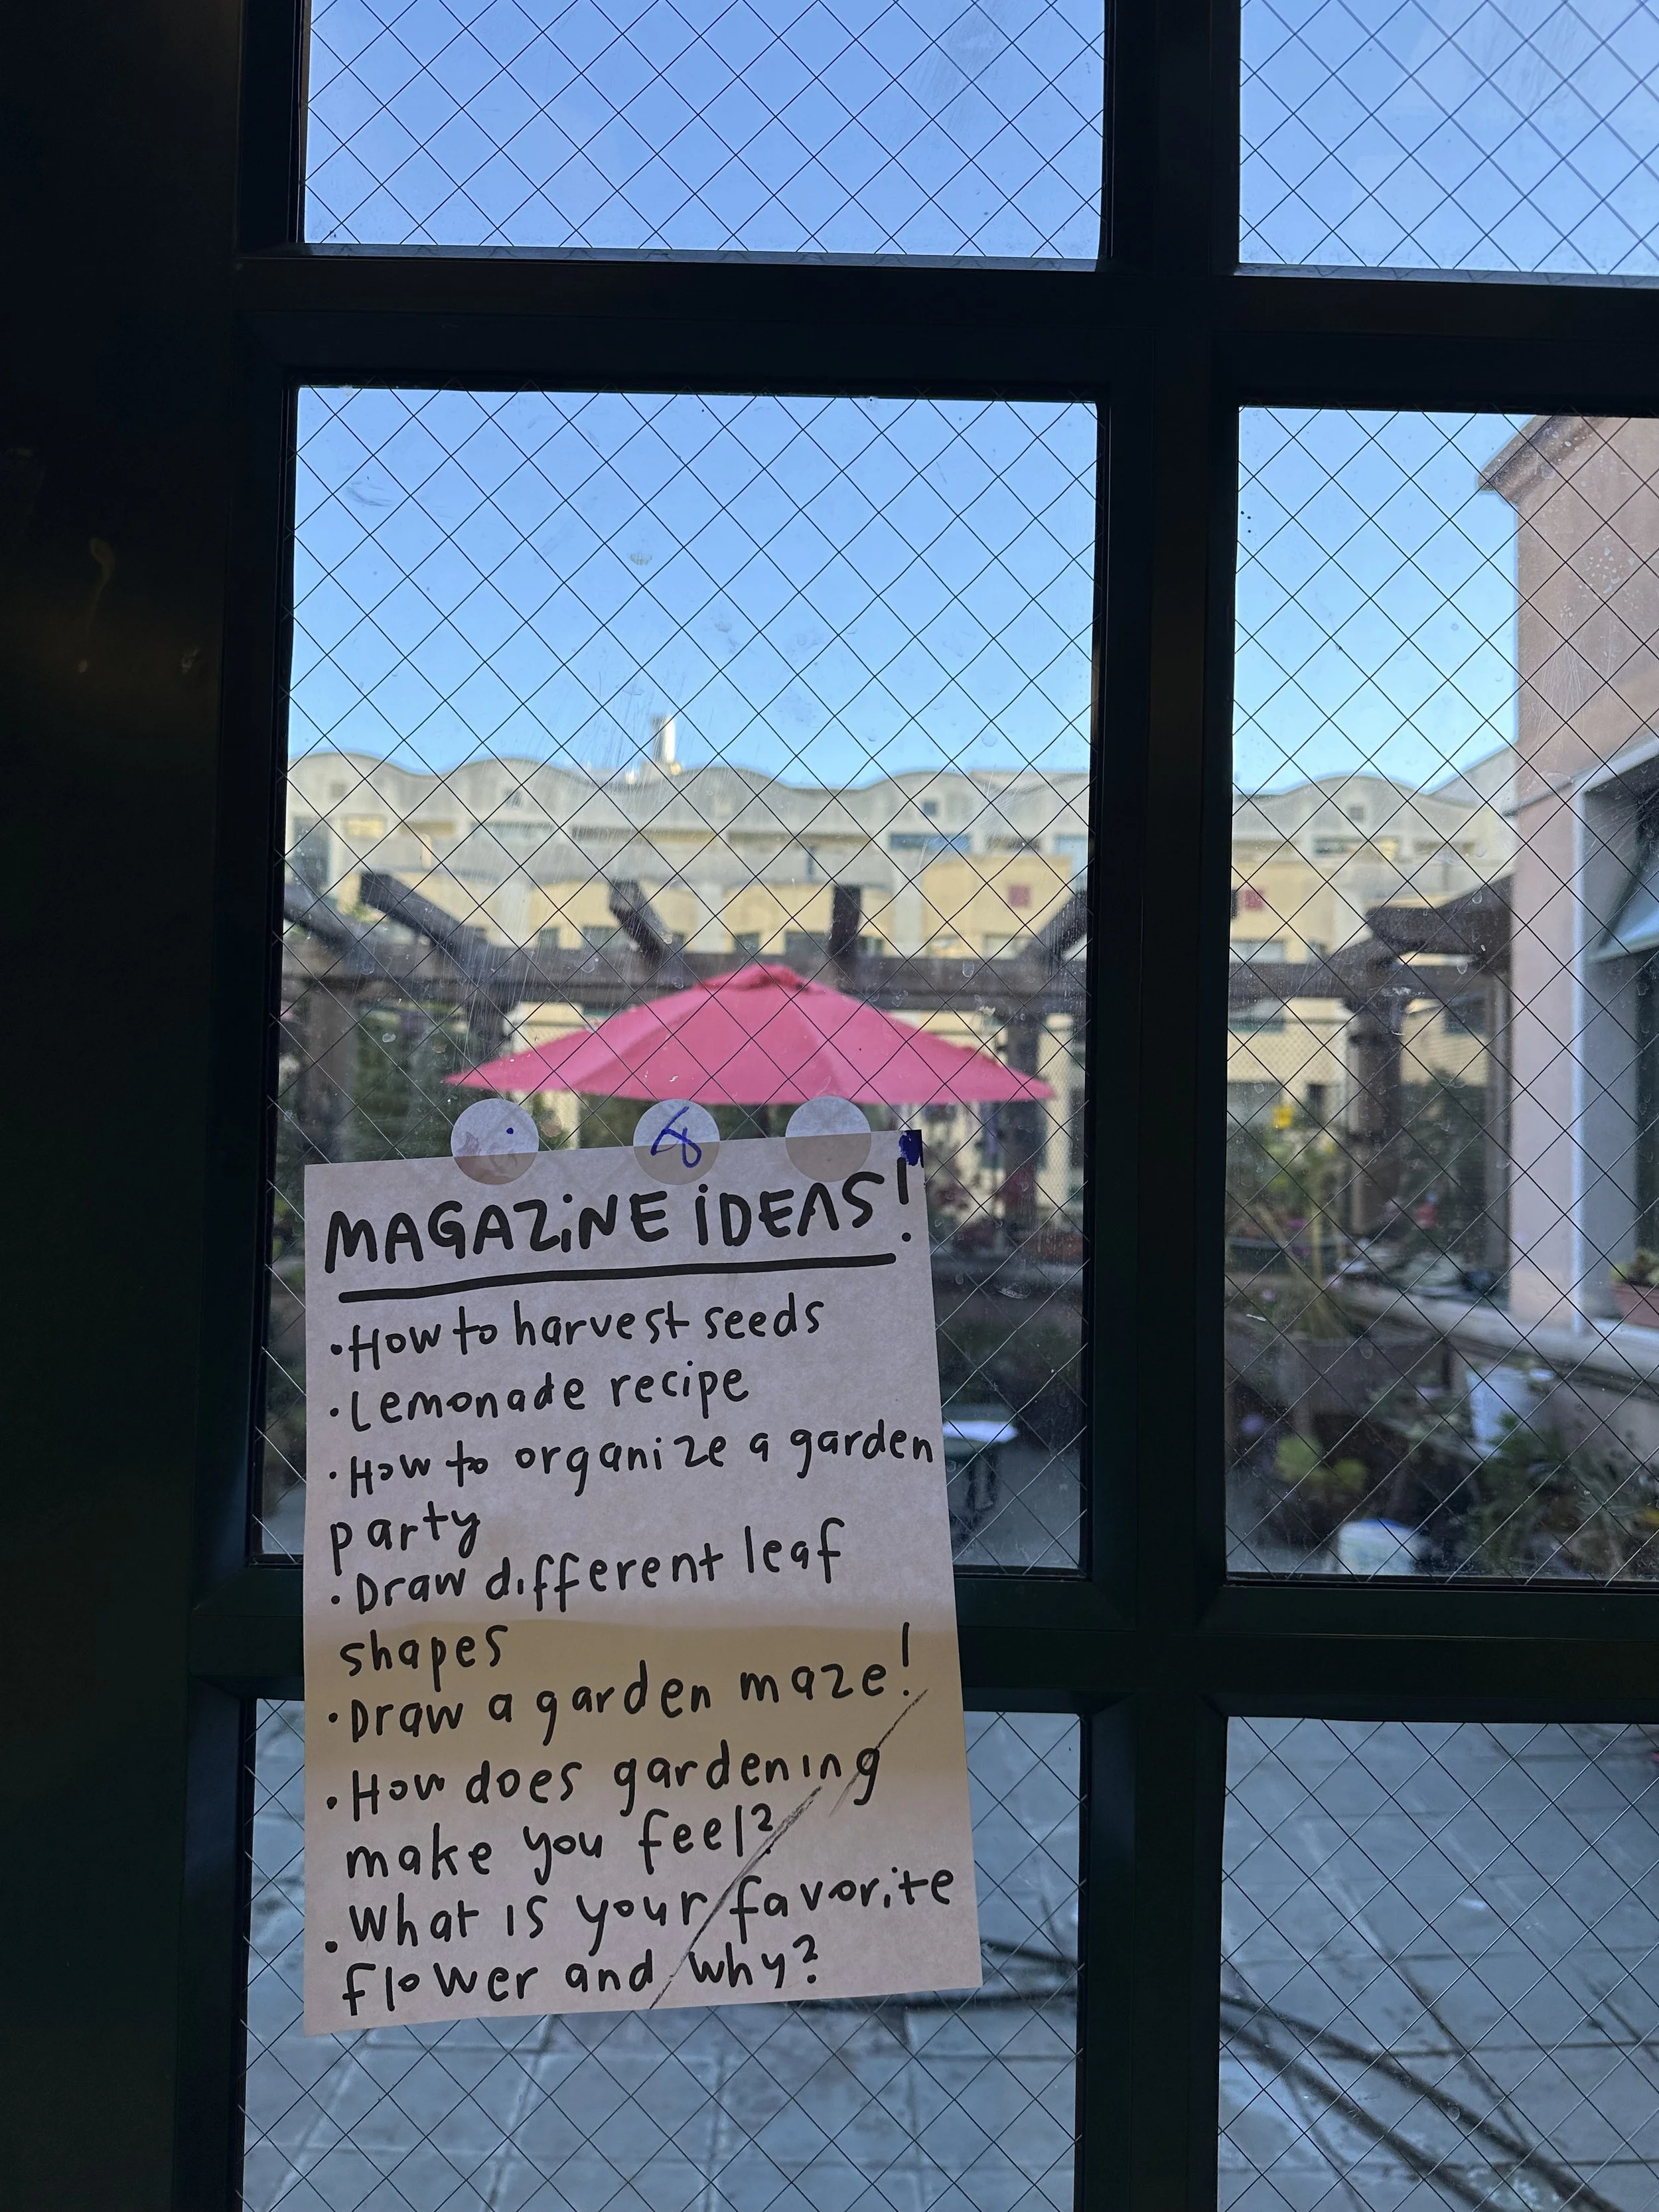 MAGAZiNE iDEAS!
·How to harvest seeds
·Lemonade recipe
·How to organize a garden
party
·Draw different leaf
shapes
·Draw a garden maze!
·How does gardening
make you feel?
·What is your favorite
flower and why?